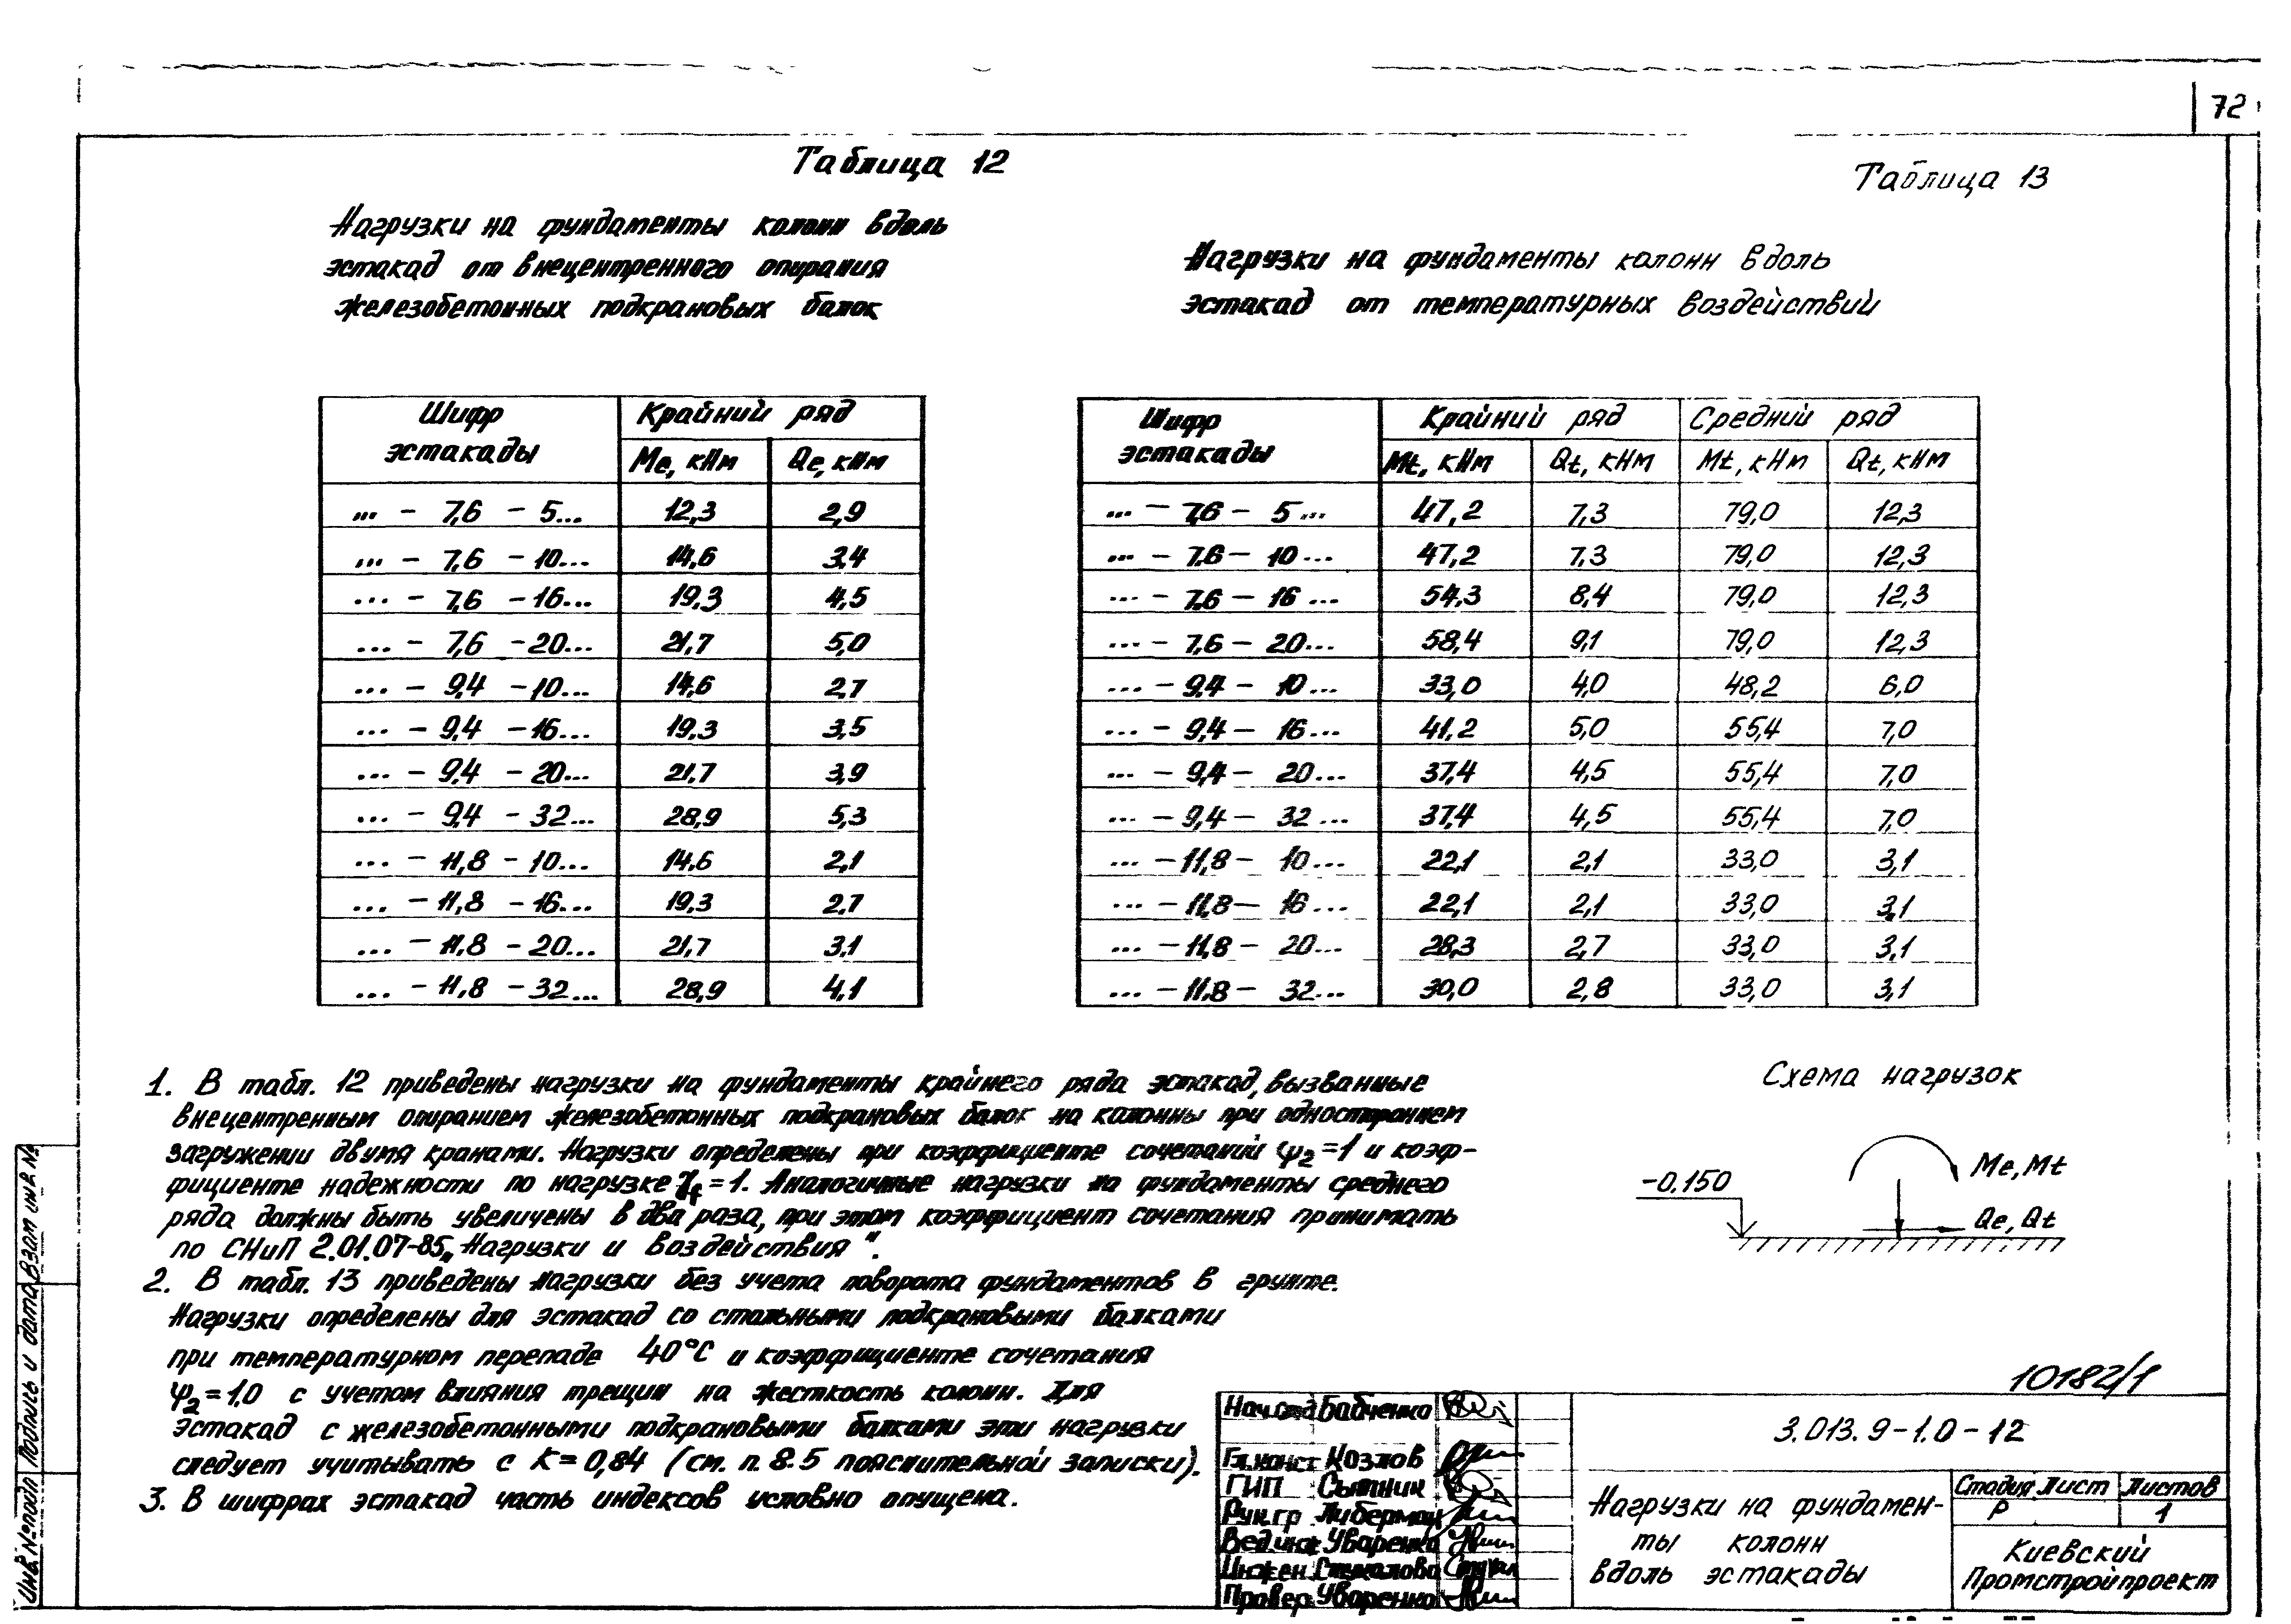 72
Таблица 12
Нагрузки на фундаменты колонн вдоль
эстакад от внецентренного опирания
железобетонных подкрановых балок
Шифр эстакады | Крайний ряд
Me, кНм | Qe, кНм
... - 7,6 - 5... | 12,3 | 2,9
... - 7,6 - 10... | 14,6 | 3,4
... - 7,6 - 16... | 19,3 | 4,5
... - 7,6 - 20... | 21,7 | 5,0
... - 9,4 - 10... | 14,6 | 2,7
... - 9,4 - 16... | 19,3 | 3,5
... - 9,4 - 20... | 21,7 | 3,9
... - 9,4 - 32... | 28,9 | 5,3
... - 11,8 - 10... | 14,6 | 2,1
... - 11,8 - 16... | 19,3 | 2,7
... - 11,8 - 20... | 21,7 | 3,1
... - 11,8 - 32... | 28,9 | 4,1
Таблица 13
Нагрузки на фундаменты колонн вдоль
эстакад от температурных воздействий
Шифр эстакады | Крайний ряд | Средний ряд
Mt, кНм | Qt, кНм | Mt, кНм | Qt, кНм
... - 7,6 - 5... | 47,2 | 7,3 | 79,0 | 12,3
... - 7,6 - 10... | 47,2 | 7,3 | 79,0 | 12,3
... - 7,6 - 16... | 54,3 | 8,4 | 79,0 | 12,3
... - 7,6 - 20... | 58,4 | 9,1 | 79,0 | 12,3
... - 9,4 - 10... | 33,0 | 4,0 | 48,2 | 6,0
... - 9,4 - 16... | 41,2 | 5,0 | 55,4 | 7,0
... - 9,4 - 20... | 37,4 | 4,5 | 55,4 | 7,0
... - 9,4 - 32... | 37,4 | 4,5 | 55,4 | 7,0
... - 11,8 - 10... | 22,1 | 2,1 | 33,0 | 3,1
... - 11,8 - 16... | 22,1 | 2,1 | 33,0 | 3,1
... - 11,8 - 20... | 28,3 | 2,7 | 33,0 | 3,1
... - 11,8 - 32... | 30,0 | 2,8 | 33,0 | 3,1
1. В табл. 12 приведены нагрузки на фундаменты крайнего ряда эстакад, вызванные
внецентренным опиранием железобетонных подкрановых балок на колонны при одностороннем
загружении двумя кранами. Нагрузки определены при коэффициенте сочетаний ψ2=1 и коэф-
фициенте надежности по нагрузке γf=1. Аналогичные нагрузки на фундаменты среднего
ряда должны быть увеличены в два раза, при этом коэффициент сочетания принимать
по СНиП 2.01.07-85 „Нагрузки и воздействия".
2. В табл. 13 приведены нагрузки без учета поворота фундаментов в грунте.
Нагрузки определены для эстакад со стальными подкрановыми балками
при температурном перепаде 40°С и коэффициенте сочетания
ψ2=1,0 с учетом влияния трещин на жесткость колонн. Для
эстакад с железобетонными подкрановыми балками эти нагрузки
следует учитывать с К=0,84 (см. п. 8.5 пояснительной записки).
3. В шифрах эстакад часть индексов условно опущена.
Схема нагрузок
-0.150
Me, Mt
Qe, Qt
10182/1
3.013.9-1.0-12
Нач.отд Бабченко
Гл.конст Козлов
ГИП Сытник
Рук.гр Либерман
Вед.инж Уваренко
Инжен
Провер Уваренко
Нагрузки на фундамен-
ты колонн
вдоль эстакады
Стадия Лист Листов
Р 1
Киевский
Промстройпроект
Инв № подл Подпись и дата Взам инв №